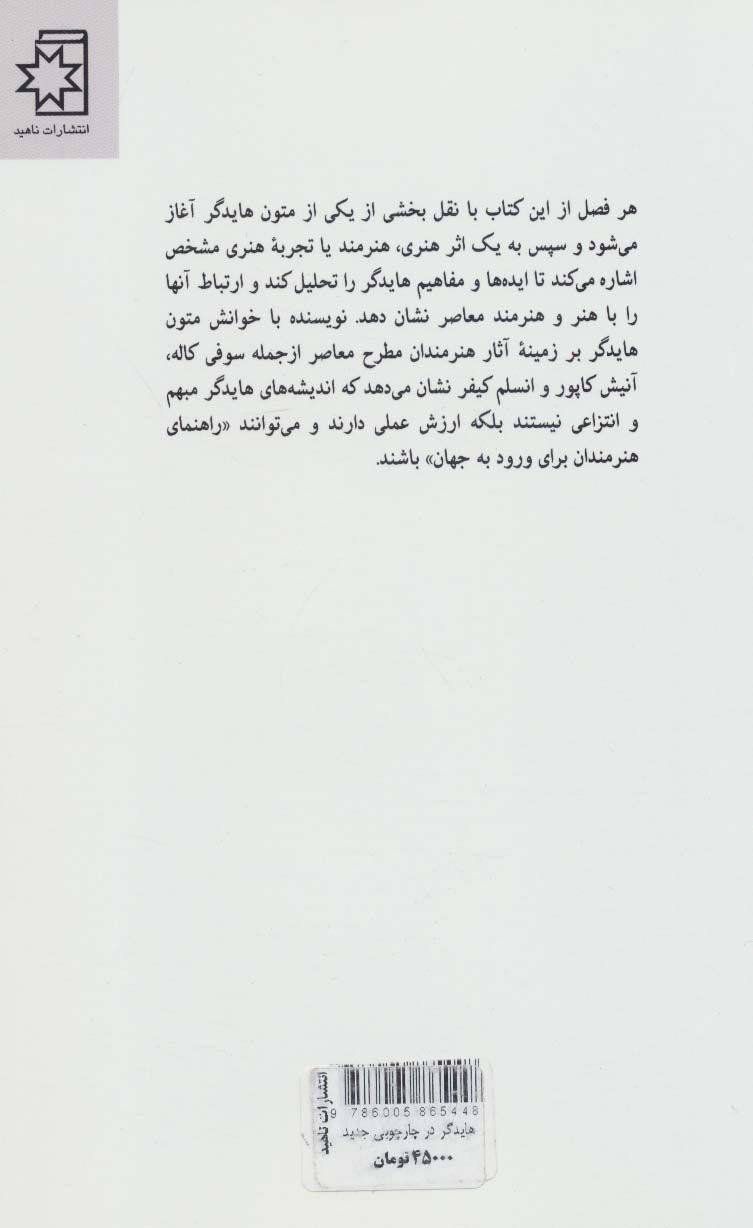 انتشارات ناهید
هر فصل از این کتاب با نقل بخشی از یکی از متون هایدگر آغاز
می‌شود و سپس به یک اثر هنری، هنرمند یا تجربهٔ هنری مشخص
اشاره می‌کند تا ایده‌ها و مفاهیم هایدگر را تحلیل کند و ارتباط آنها
را با هنر و هنرمند معاصر نشان دهد. نویسنده با خوانش متون
هایدگر بر زمینهٔ آثار هنرمندان مطرح معاصر ازجمله سوفی کاله،
آنیش کاپور و انسلم کیفر نشان می‌دهد که اندیشه‌های هایدگر مبهم
و انتزاعی نیستند بلکه ارزش عملی دارند و می‌توانند «راهنمای
هنرمندان برای ورود به جهان» باشند.
انتشارات ناهید
9 786005 865448
هایدگر در چارچوبی جدید
۴۵۰۰۰ تومان